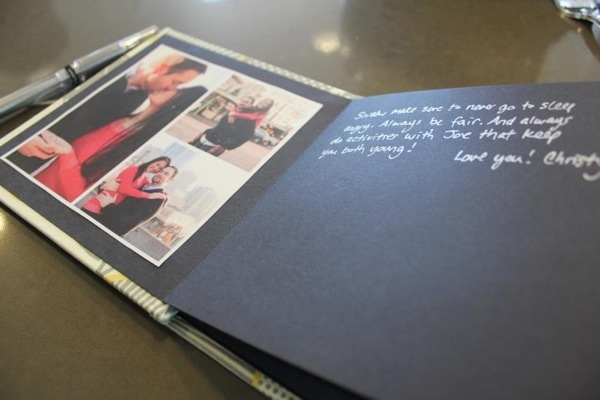 make sure to never go to sleep
angry. Always be fair. And always
do activities with Joe that keep
you both young!
Love you! Christy